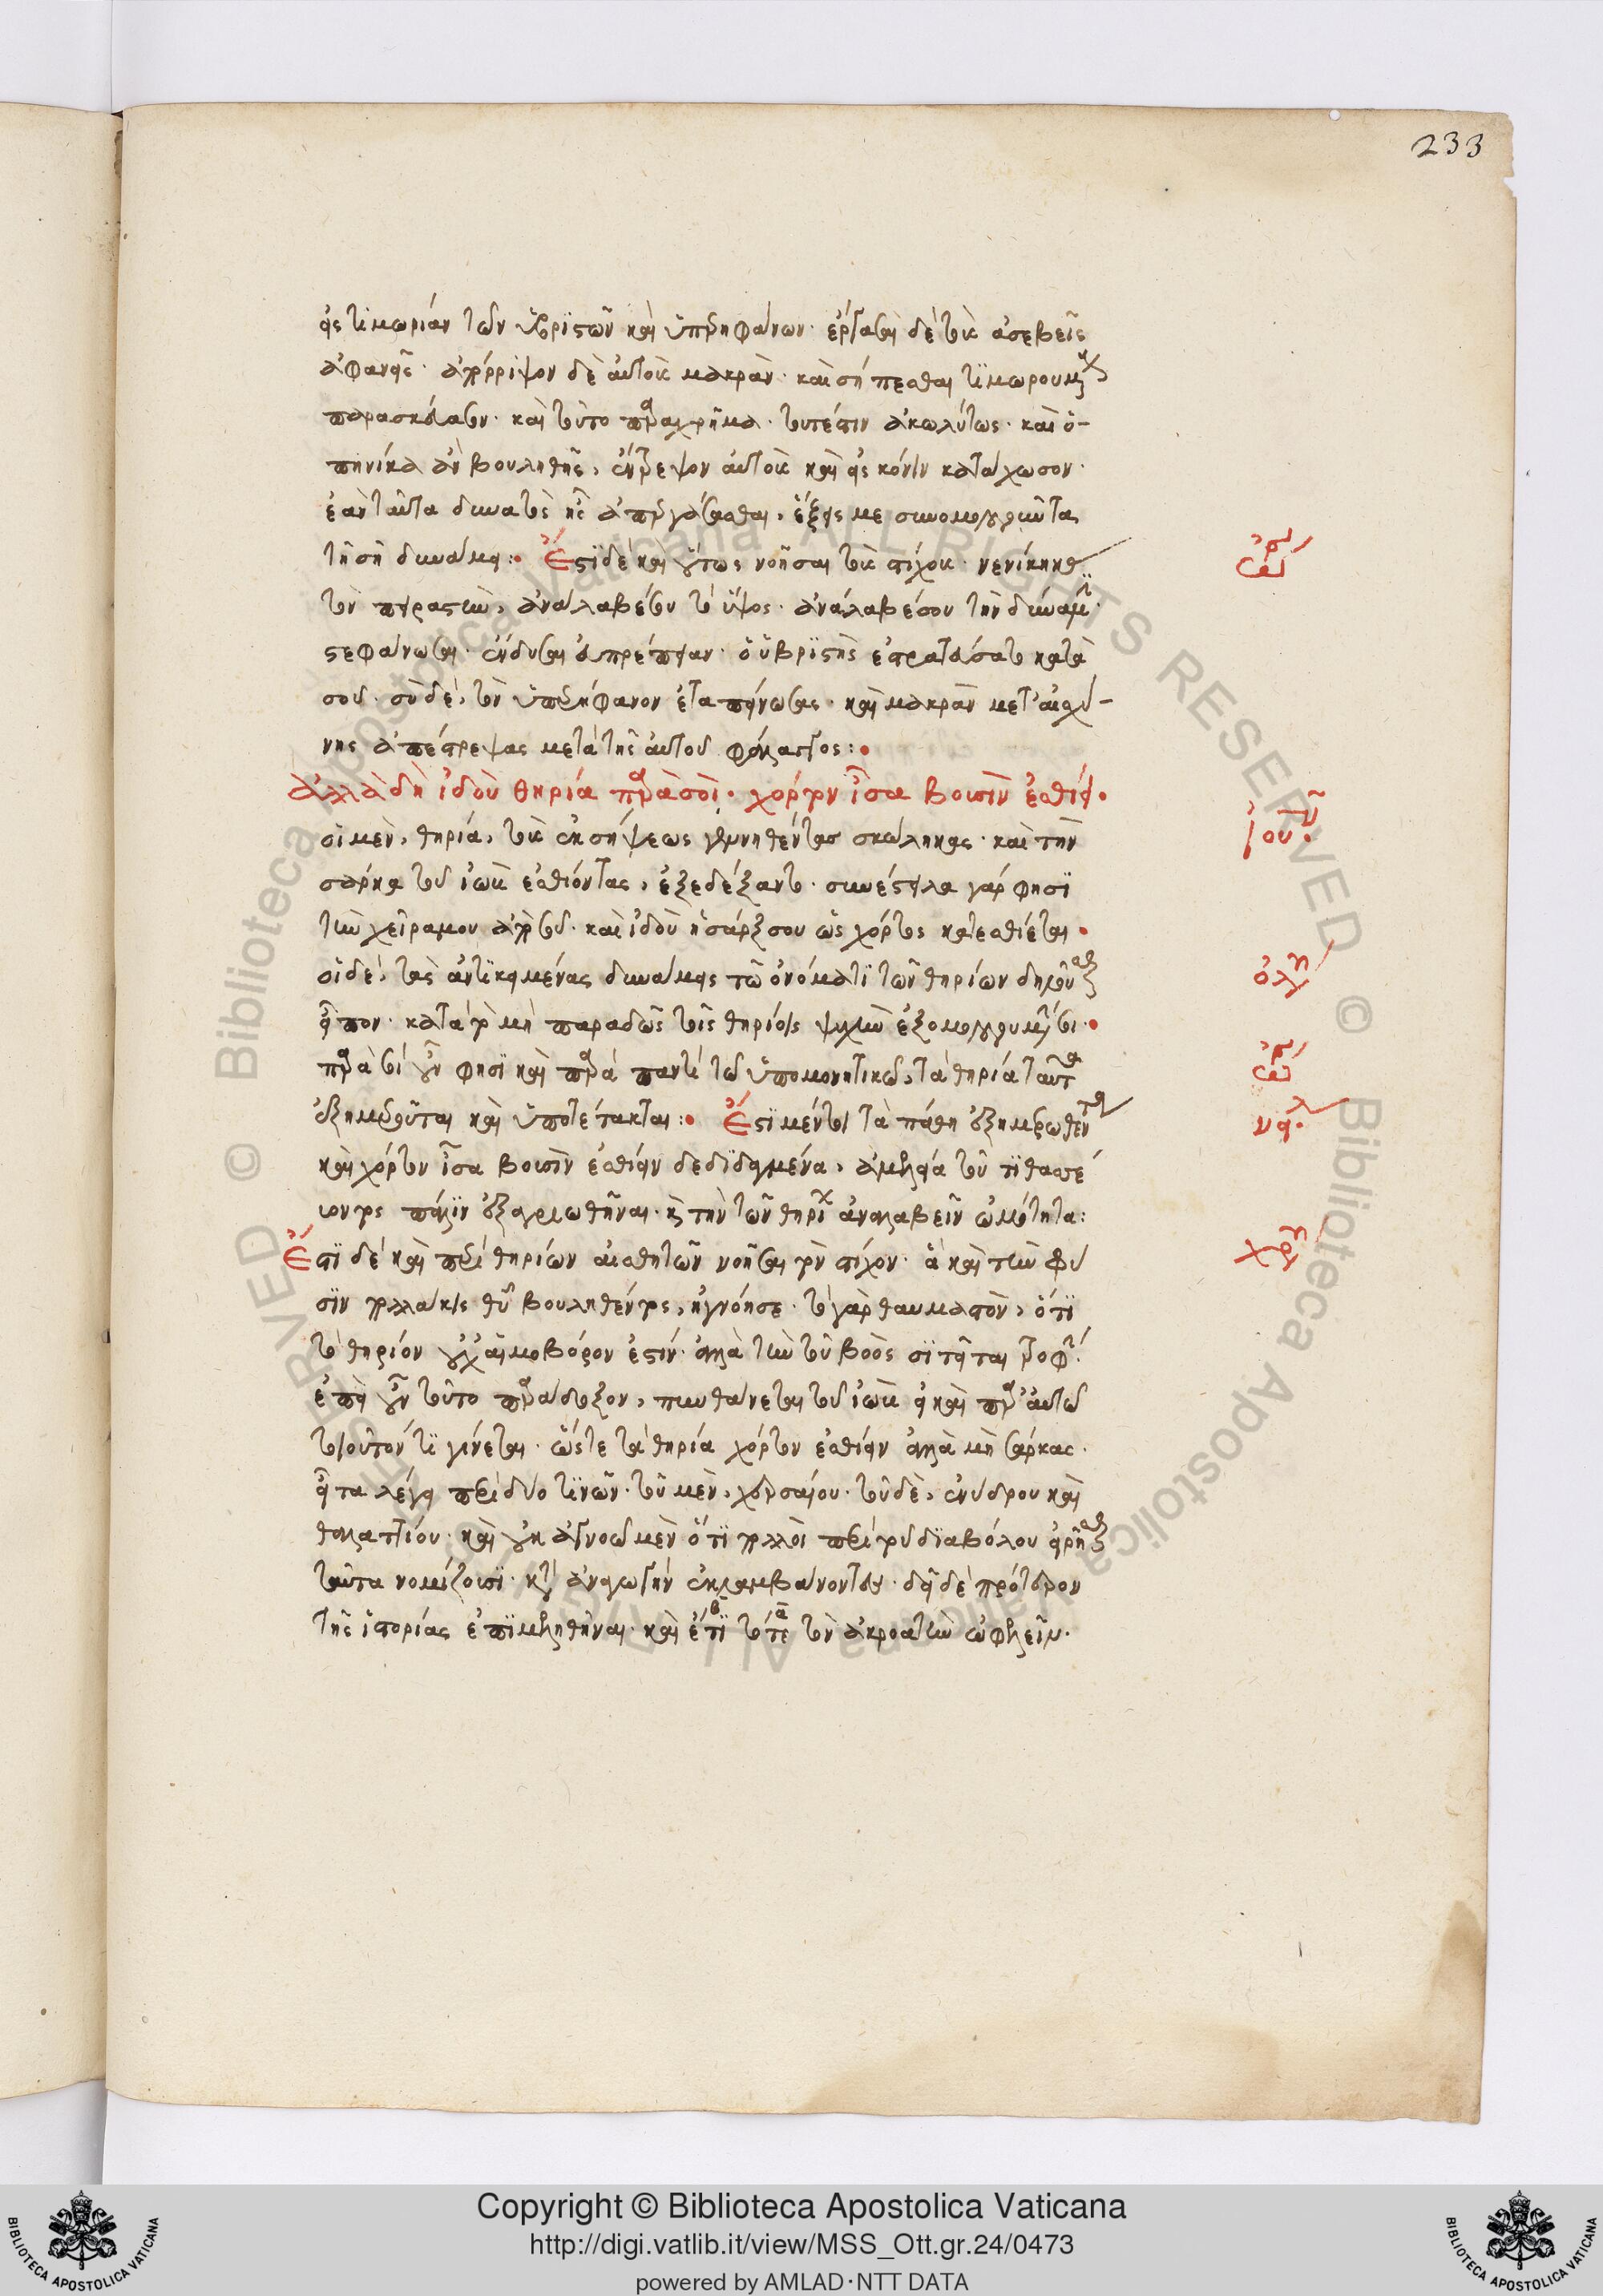 233
εἰς τιμωρίαν τῶν ὑβριστῶν καὶ ὑπερηφάνων· ἐργάσαι δὲ τοὺς ἀσεβεῖς
ἀφανεῖς· ἀπόρριψον δὲ αὐτοὺς μακράν· καὶ σήπεσθαι τιμωρουμένους
παρασκεύασον· καὶ τοῦτο παραχρῆμα· τουτέστιν ἀκωλύτως· καὶ ὁ-
πηνίκα ἂν βουληθῇς, ἔντρεψον αὐτοὺς καὶ εἰς κόνιν κατάχωσον·
ἐὰν ταῦτα δυνατὸς ᾖς ἀπεργάσασθαι, ἕξεις με συνομολογοῦντα
τῇ σῇ δυνάμει: Ἔστι δὲ καὶ οὕτως νοῆσαι τοὺς στίχους· νενίκηκας
τὸν πειραστὴν, ἀνάλαβε τὸ ὕψος· ἀνάλαβέ σου τὴν δύναμιν·
στεφάνωσαι· ἔνδυσαι εὐπρέπειαν· ὁ ὑβριστὴς ἐστρατεύσατο κατὰ
σοῦ· σὺ δὲ, τὸν ὑπερήφανον ἐταπείνωσας· καὶ μακρὰν μετ' αἰσχύ-
νης ἀπέστρεψας μετὰ τῆς αὐτοῦ φάλαγγος:
Ἀλλὰ δὴ ἰδοὺ θηρία παρὰ σοί· χόρτον ἴσα βουσὶν ἐσθίει·
οἱ μὲν, θηρία, τοὺς ἐκ σήψεως γεννηθέντας σκώληκας· καὶ τὴν
σάρκα τοῦ ἰὼβ ἐσθίοντας, ἐξεδέξαντο· συνέστειλα γάρ φησι
τὴν χεῖρα μου ἀπὸ σοῦ· καὶ ἰδοὺ ἡ σάρξ σου ὡς χόρτος κατεσθίεται
οἱ δὲ, τὰς ἀντικειμένας δυνάμεις τῷ ὀνόματι τῶν θηρίων δηλοῦσθαι
εἶπον· κατὰ τὸ μὴ παραδῷς τοῖς θηρίοις ψυχὴν ἐξομολογουμένην σοι·
παρὰ σοὶ οὖν φησι καὶ παρὰ παντὶ τῷ ὑπομονητικῷ, τὰ θηρία ταῦτα
ἐξημεροῦται καὶ ὑποτέτακται: Ἔστι μέντοι τὰ πάθη ἐξημερωθέντα
καὶ χόρτον ἴσα βουσὶν ἐσθίειν δεδιδαγμένα, ἀμελείᾳ τοῦ τιθασσεύ
οντος πάλιν ἐξαγριωθῆναι· καὶ τὴν τῶν θηρίων ἀναλαβεῖν ὠμότητα:
Ἔστι δὲ καὶ περὶ θηρίων αἰσθητῶν νοῆσαι τὸν στίχον· ἃ καὶ τὴν φύ
σιν πολλάκις θεοῦ βουληθέντος, ἠγνόησε· τὸ γὰρ θαυμαστὸν, ὅτι
τὸ θηρίον οὐχ αἱμοβόρον ἐστίν· ἀλλὰ τὴν τοῦ βοὸς σιτεῖται τροφήν·
ἐπεὶ οὖν τοῦτο παράδοξον, πυνθάνεται τοῦ ἰὼβ εἰ καὶ παρ' αὐτῷ
τοιοῦτόν τι γίνεται· ὥστε τὰ θηρία χόρτον ἐσθίειν ἀλλὰ μὴ σάρκας·
εἶτα λέγει περὶ δύο τινῶν· τοῦ μὲν, χερσαίου· τοῦ δὲ, ἐνύδρου καὶ
θαλαττίου· καὶ οὐκ ἀγνοῶ μὲν ὅτι πολλοὶ περὶ τοῦ διαβόλου εἰρῆσθαι
ταῦτα νομίζουσι· κατὰ ἀναγωγὴν ἐκλαμβάνοντες· δεῖ δὲ πρότερον
τῆς ἱστορίας ἐπιμεληθῆναι· καὶ ἔτι τότε τὸν ἀκροατὴν ὠφελεῖν·
Copyright © Biblioteca Apostolica Vaticana
http://digi.vatlib.it/view/MSS_Ott.gr.24/0473
powered by AMLAD·NTT DATA